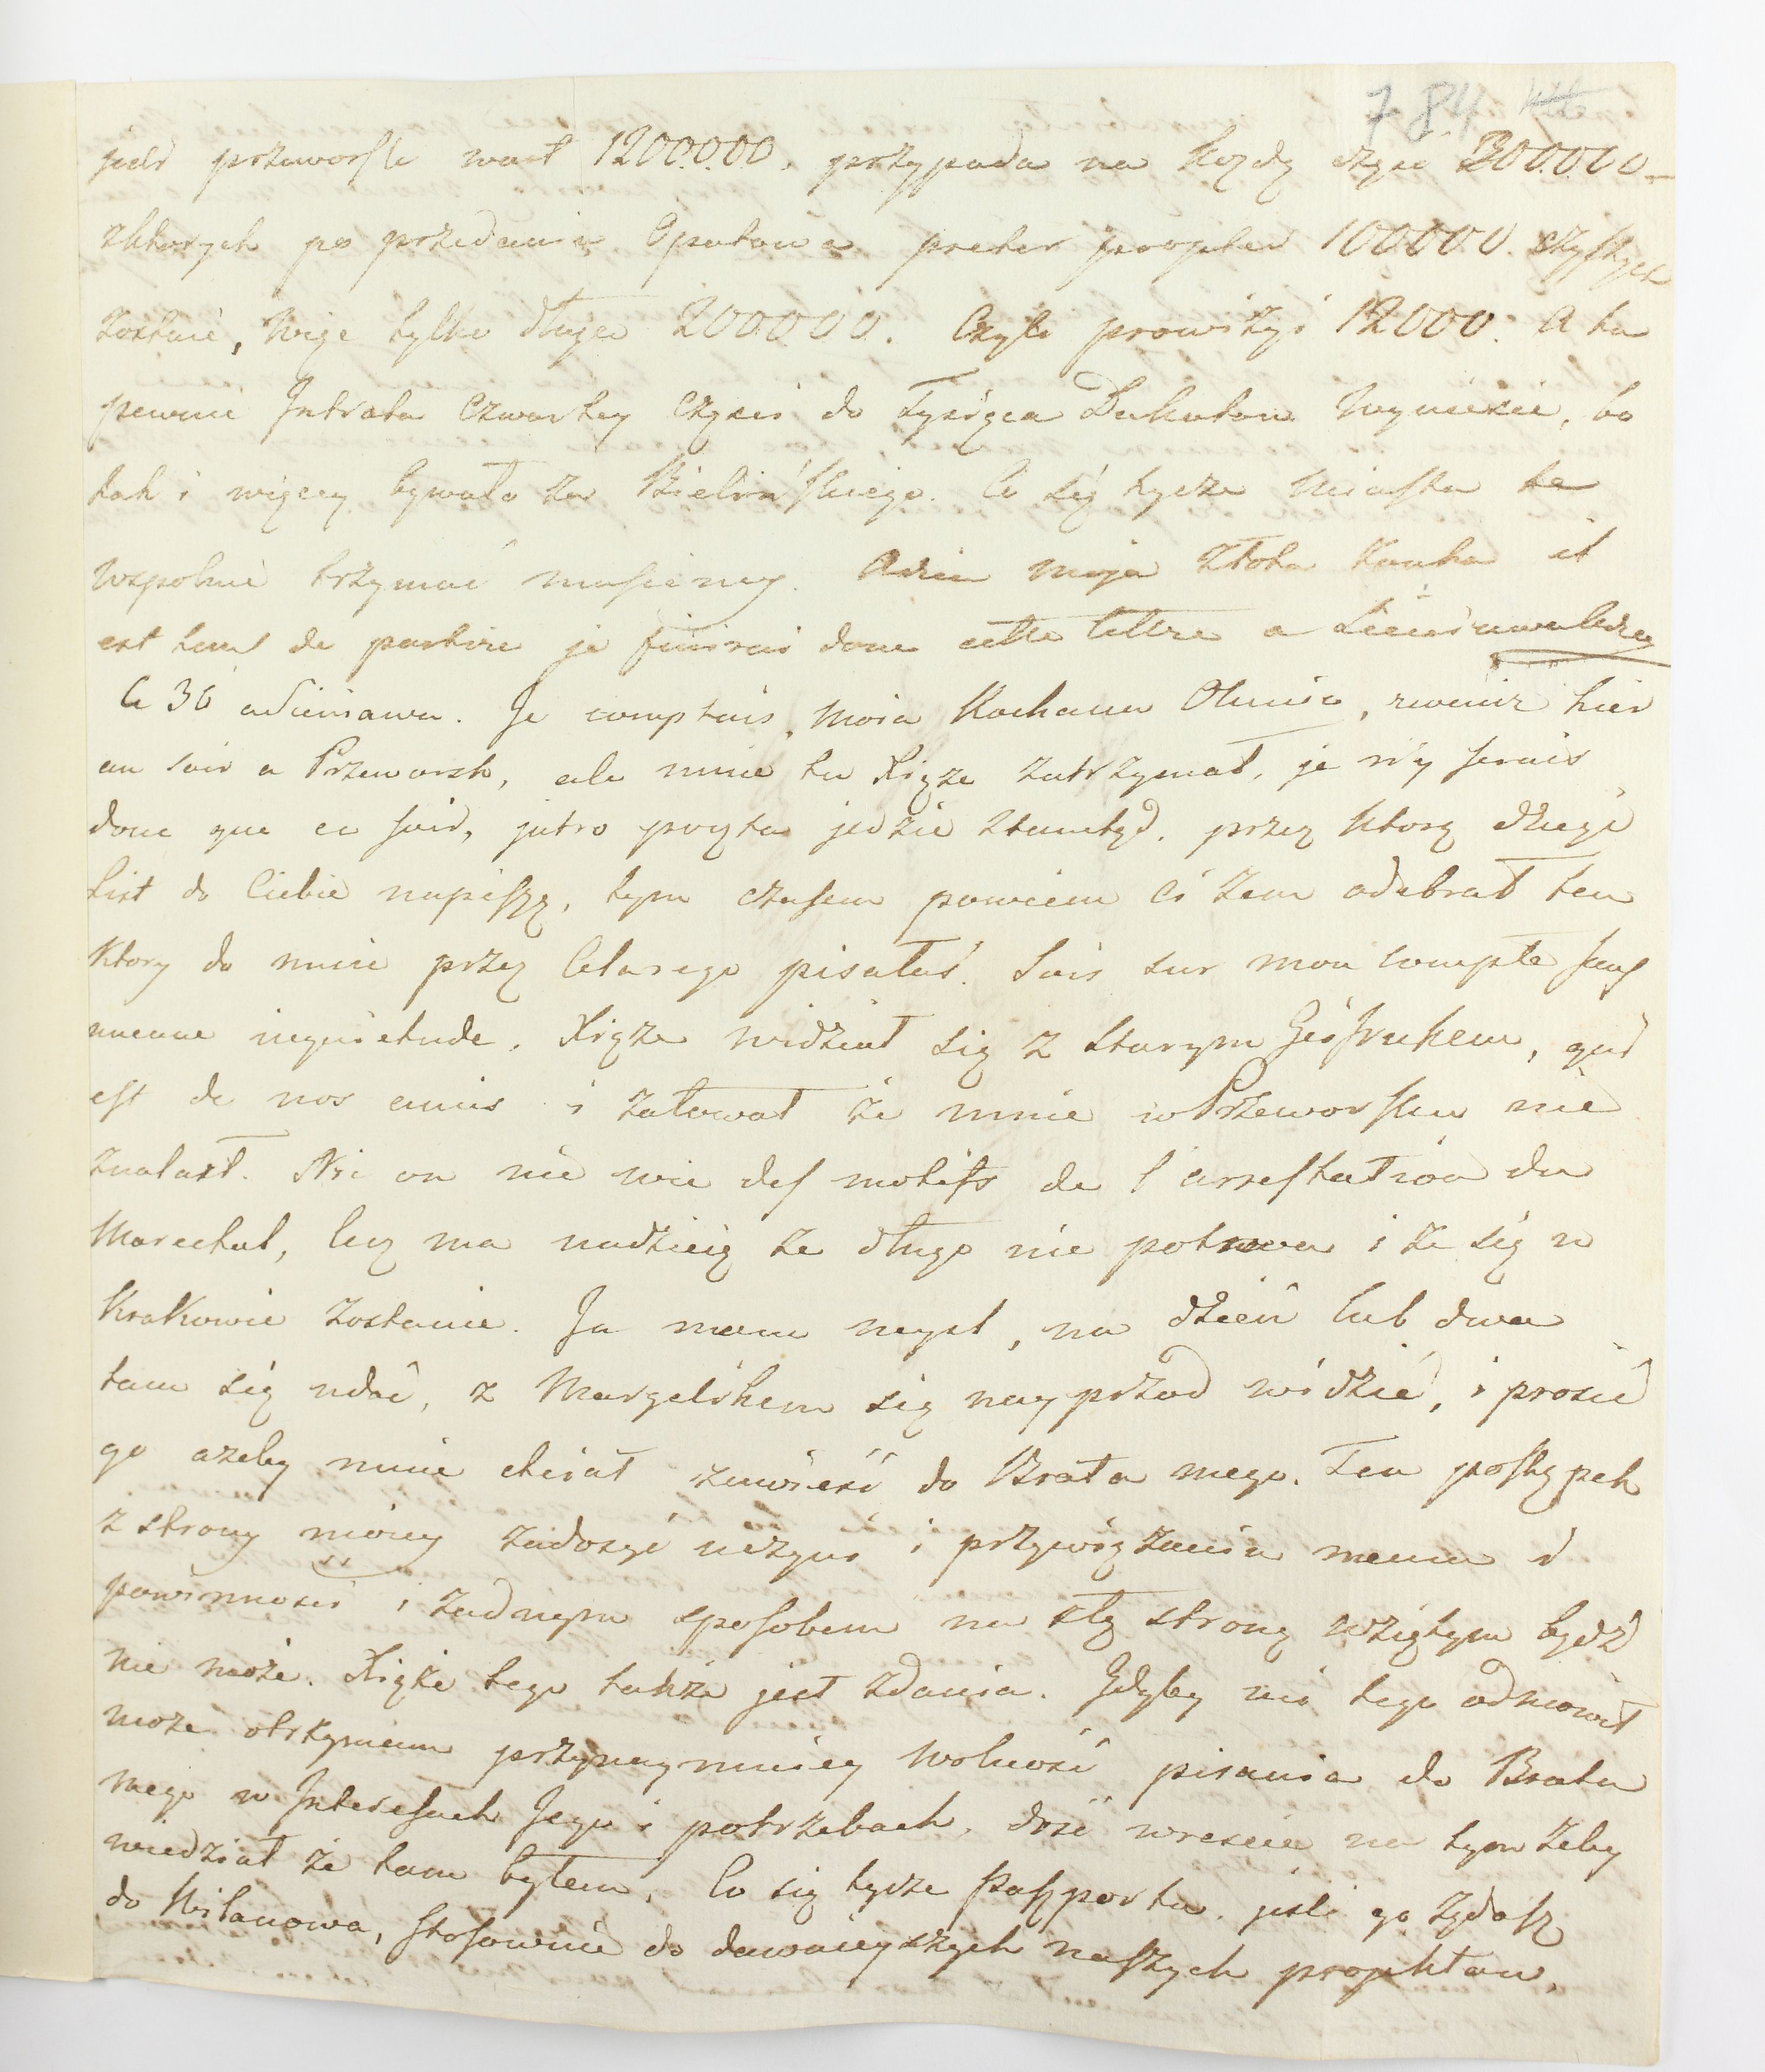 784
jeśli przeworsk wart 1200.000. przypada na każdą część 300.000 –
zktorych po przedaniu Opatowa preter propter 100000. czystych
zostanie, więc tylko długu 200000. Czyli prowizyi 12000. A ta
pewnie Intrata Czwartey Części do Tysiąca Dukatow wyniesie, bo
tak i więcey bywało za Bielińskiego. Co się tycze Miasta te
wspolnie trzymać musiemy. Adieu moja złota Kanka il
est tems de partire je finirai donc cette lettre a Sieniawa
Ce 30 a Sieniawa. Je comptais, moia Kochana Olunia, revenir hier
au soir a Przeworsk, ale mnie tu Xiąże zatrzymał, je n'y serais
donc que ce soir, jutro poczta jedzie ztamtąd, przez ktorą długi
List do Ciebie napiszę, tym czasem powiem Ci żem odebrał ten
Ktory do mnie przez Cetnarego pisałaś. Sois sur mon compte sans
aucune inquietude. Xiąże widział się z Starym, qui
est de nos amis i żałował że mnie w Przeworsku nie
znalazł. Nic on nie wie des motifs de l'arrestation du
Marechal, lecz ma nadzieię że długo nie potrwa i że się w
Krakowie zostanie. Ja mam mysl, na dzień lub dwa
tam się udać, z Margelikem się nayprzod widzieć, i prosić
go azeby mnie chciał zawieść do Brata mego. Ten postępek
z strony moiey zadosyć uczyni i przywiązaniu memu i
powinnosci i żadnym sposobem na złą stronę wziętym bydź
nie może. Xiąże tego także jest zdania. Gdyby mi tego odmowił
może otrzymam przynaymniey wolność pisania do Brata
mego w Interesach Jego i potrzebach. dość wreście na tym żeby
wiedział że tam byłem. Co się tycze Paszportu, jeśli go żądasz
do Wilanowa, stosownie do dawnieyszych naszych projektow,